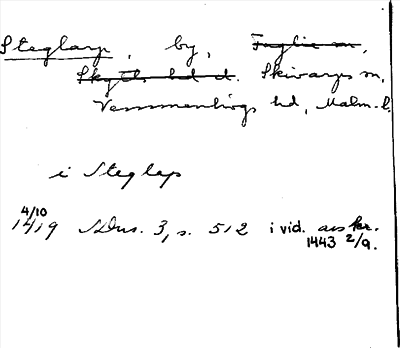 Steglarp, by, Fuglie sn,
Skytts hd d. Skivarps sn,
Vemmenhögs hd, Malm. l.
i Steglep
4/10
1419 SDns. 3, s. 512 i vid. avskr.
1443 2/9.